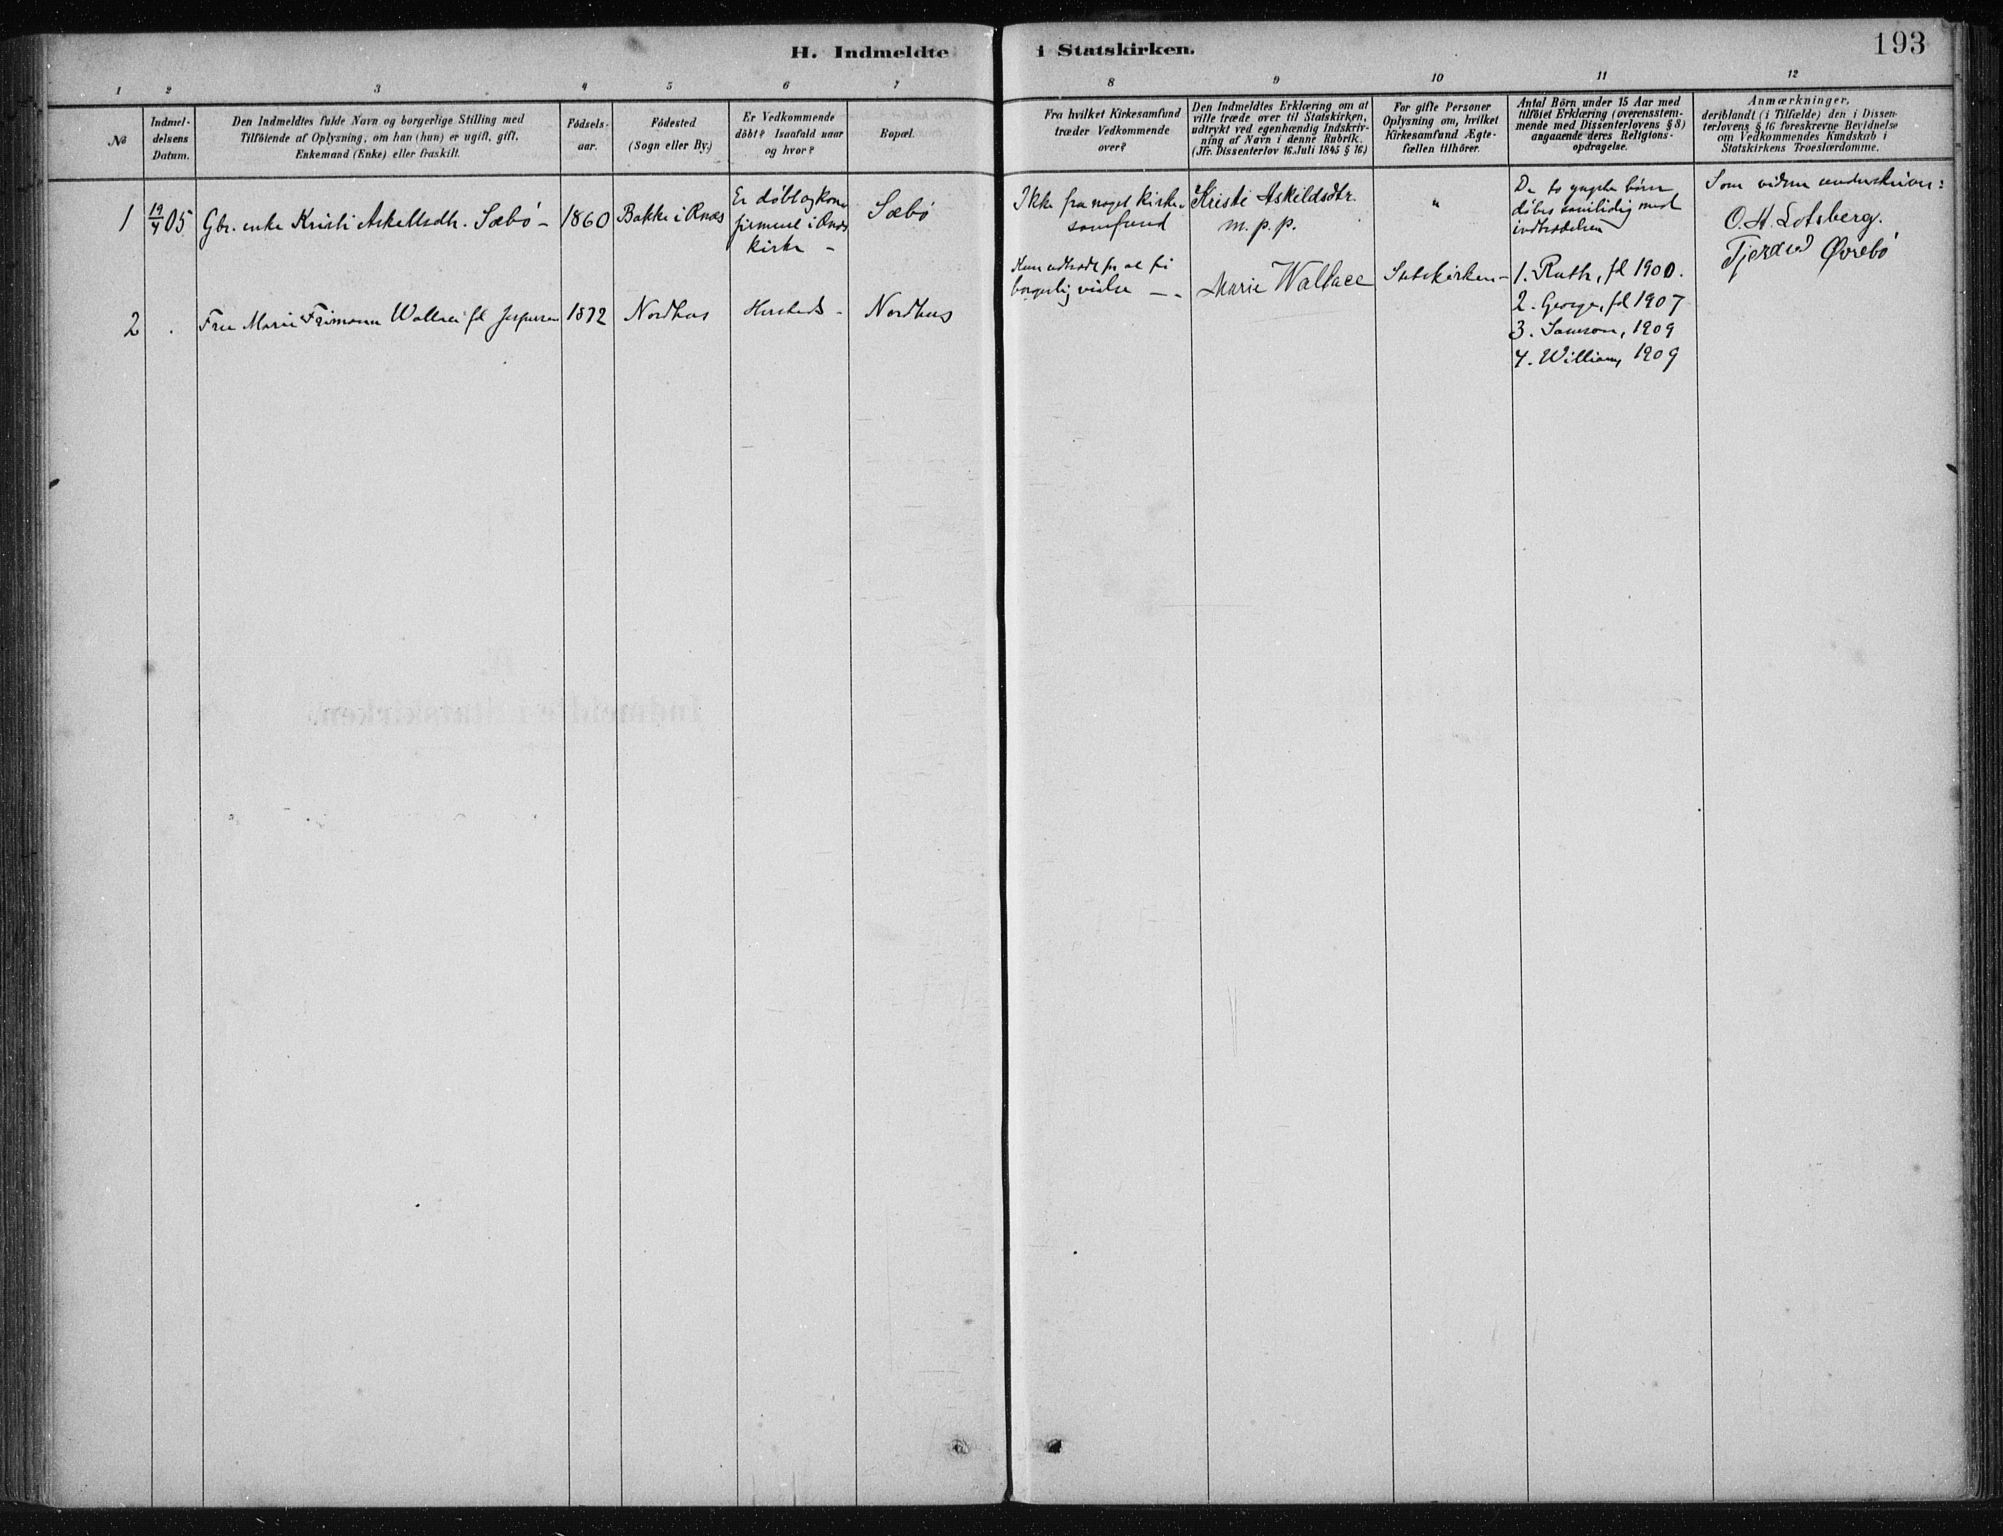 H. Indmeldte i Statskirken.
193
1 2 3 4 5 6 7 8 9 10 11 12
No
Indmel-
delsens
Datum.
Den Indmeldtes fulde Navn og borgerlige Stilling med
Tilföiende af Oplysning, om han (hun) er ugift, gift,
Enkemand (Enke) eller fraskilt.
Födsels-
aar.
Födested
(Sogn eller By.)
Er Vedkommende
döbt? Isaafald naar
og hvor?
Bopæl.
Fra hvilket Kirkesamfund
træder Vedkommende
over?
Den Indmeldtes Erklæring om at
ville træde over til Statskirken,
udtrykt ved egenhændig Indskriv-
ning af Navn i denne Rubrik.
(Jfr. Dissenterlov 16. Juli 1845 § 16)
For gifte Personer
Oplysning om, hvilket
Kirkesamfund Ægte-
fællen tilhörer.
Antal Börn under 15 Aar med
tilföiet Erklæring (overensstem-
mende med Dissenterlovens § 8)
angaaende deres Religions-
opdragelse.
Anmærkninger,
deriblandt (i Tilfælde) den i Dissen-
terlovens § 16 foreskrevne Bevidnelse
om Vedkommendes Kundskab i
Statskirkens Troeslærdomme.
1
19/4 05
Gbr. enke Kristi Askellsdtr. Sæbö -
1860
Bakke i Ænæs
Er döbt og kon-
firmeret i Ænæs
kirke -
Sæbö
Ikke fra noget kirke-
samfund
Kristi Askildsdtr.
m. p. p.
"
De to yngste börn
döbes samtidig med
indtrædelsen
Som vidner underskriver:
O. H. Lotsberg.
Øvrebö
2
.
Fru Marie Frimann Wallace fd Jespersen
1872
Nordhus
-
Nordhus
Kun udtraadt for at få
borgerlig vielse -
Marie Wallace
Statskirken -
1. Ruth, fd 1900.
2. George, fd 1907
3. Samson, 1909
4. William, 1909